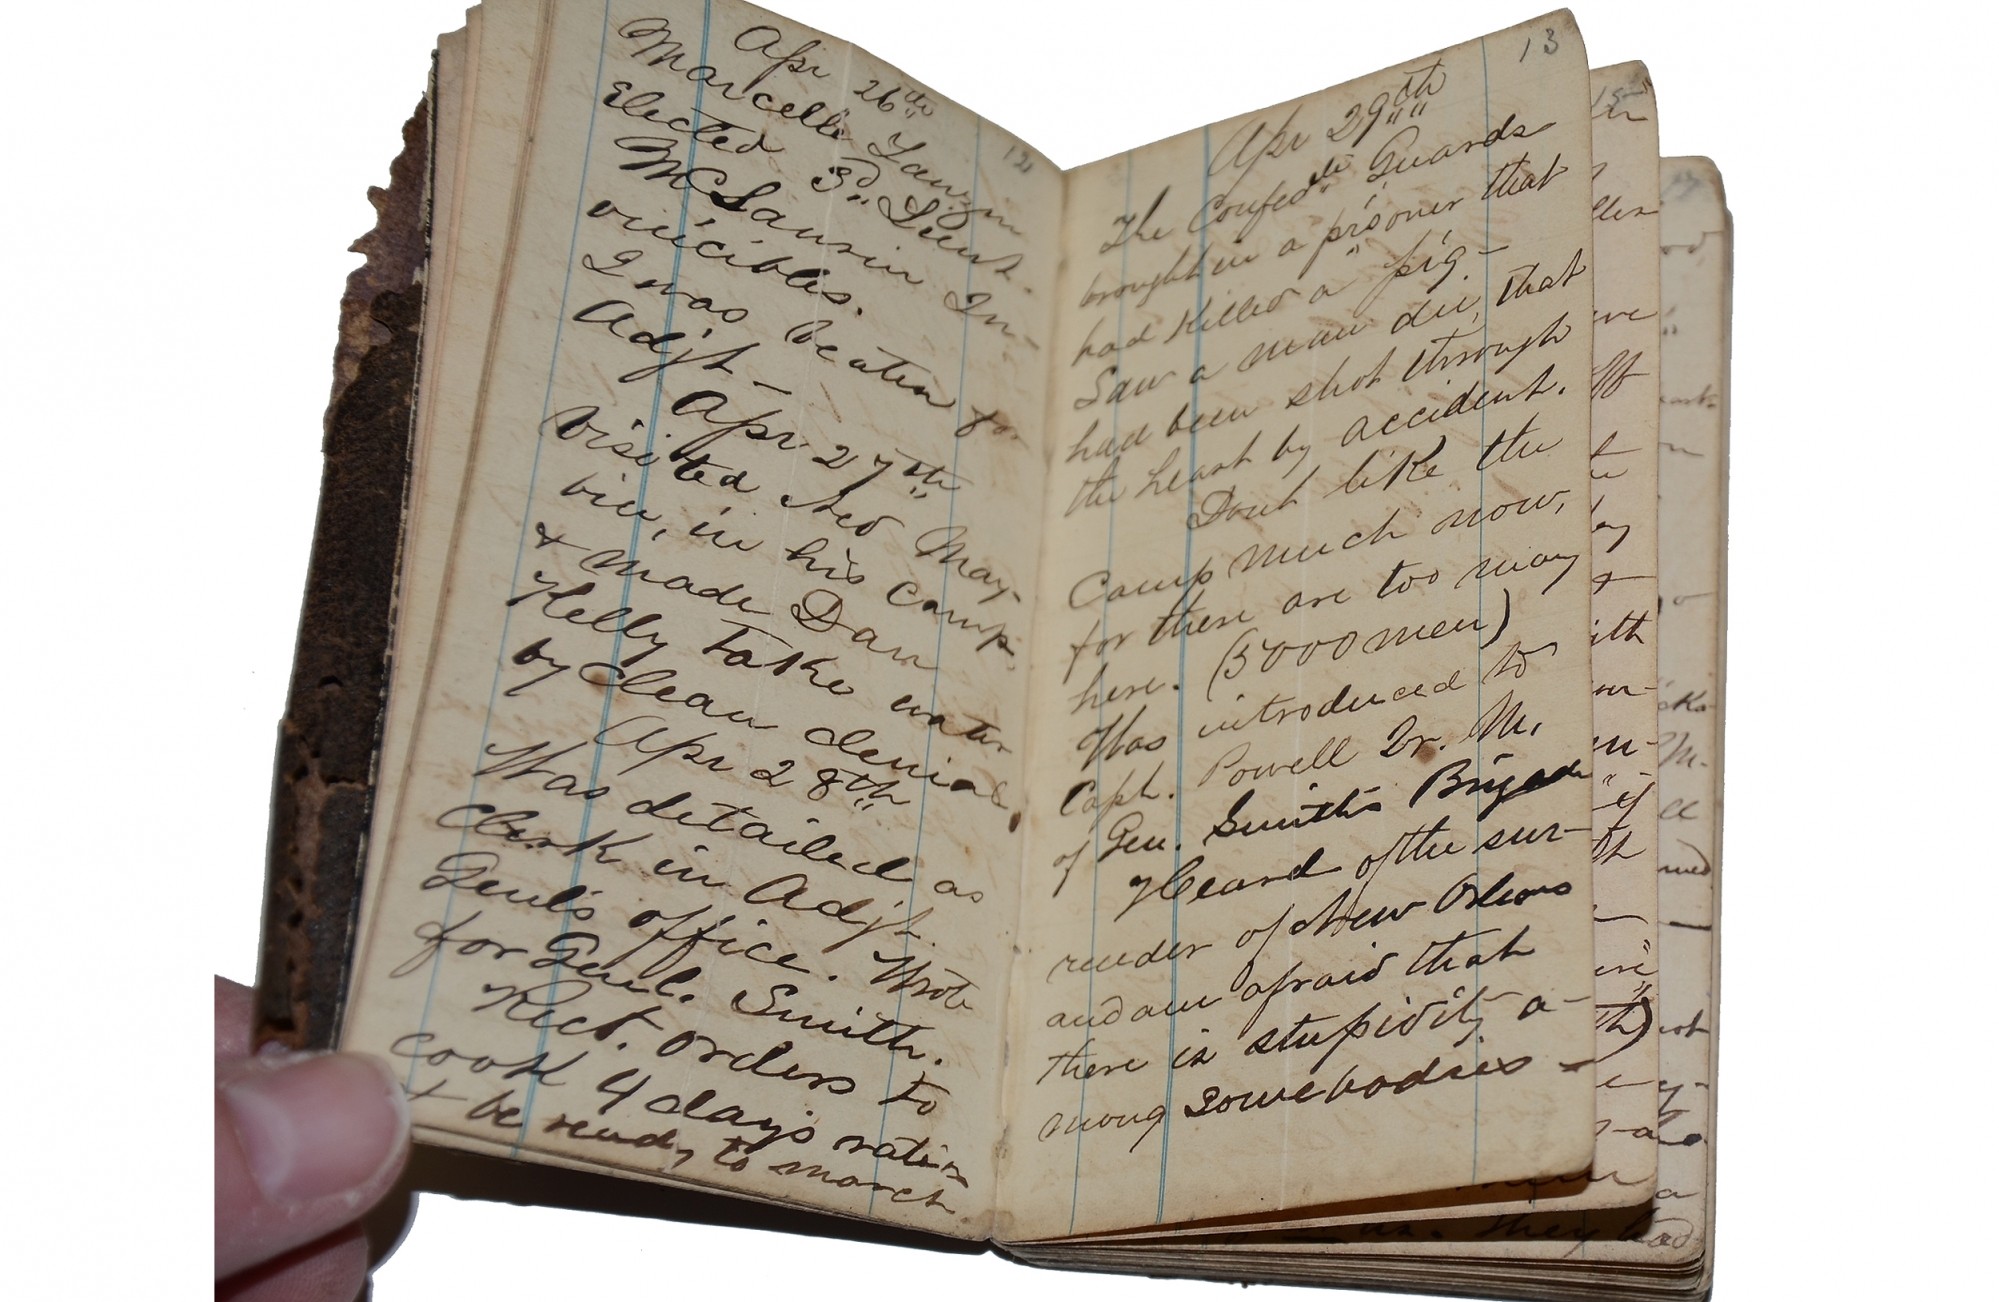 12
Apr 26th
Marcellı Lauzin
Elected 3d Lieut.
McLaurin In-
vincibles.
I was beaten for
Adjt —
Apr. 27th
Visited Ned May-
bin, in his camp.
& made Dan
Kelly take water
by clean denial.
Apr 28th
Was detailed as
Clerk in Adjt.
Genl's office. Wrote
for Genl. Smith.
Rect. orders to
cook 4 days rations
& be ready to march.
13
Apr 29th
The Confedte Guards
brought in a prisoner that
had killed a "pig. —
Saw a man die, that
had been shot through
the heart by accident.
Dont like the
Camp much now,
for there are too many
here. (5000 men)
Was introduced to
Capt. Powell Dr. M.
of Gen. Smith's Brigade
Heard of the sur-
render of New Orleans
and am afraid that
there is stupidity a-
mong somebodies —
15
17
us. they had